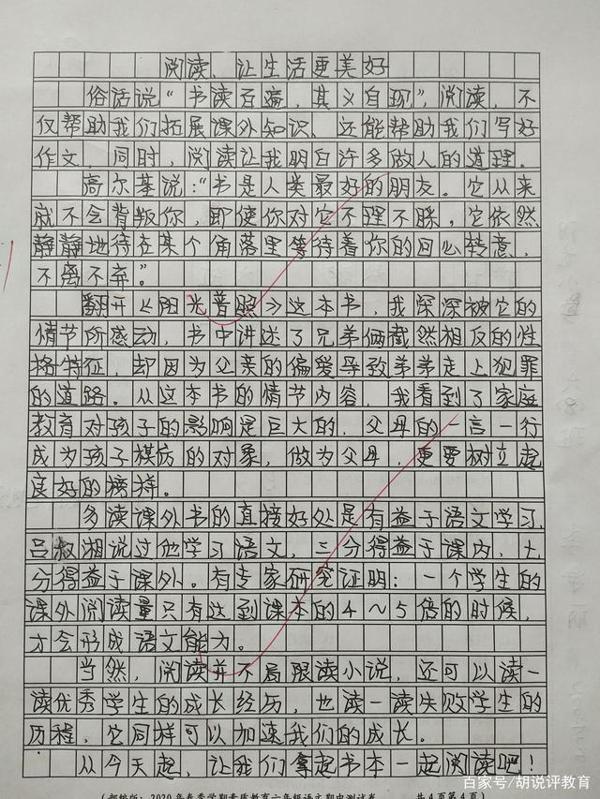 阅读,让生活更美好
俗话说“书读百遍,其义自现”,阅读,不
仅帮助我们拓展课外知识,还能帮助我们写好
作文,同时,阅读让我明白许多做人的道理。
高尔基说:“书是人类最好的朋友。它从来
就不会背叛你,即使你对它不理不睬,它依然
静静地待在某个角落里等待着你的回心转意,
不离不弃。”
翻开《阳光普照》这本书,我深深被它的
情节所感动,书中讲述了兄弟俩截然相反的性
格特征,却因为父亲的偏爱导致弟弟走上犯罪
的道路。从这本书的情节内容,我看到了家庭
教育对孩子的影响是巨大的,父母的一言一行
成为孩子模仿的对象,做为父母,更要树立起
良好的榜样。
多读课外书的直接好处是有益于语文学习,
吕叔湘说过他学习语文,三分得益于课内,七
分得益于课外。有专家研究证明:一个学生的
课外阅读量只有达到课本的4~5倍的时候,
才会形成语文能力。
当然,阅读并不局限读小说,还可以读一
读优秀学生的成长经历,也读一读失败学生的
历程,它同样可以加速我们的成长。
从今天起,让我们拿起书本一起阅读吧!
2020年春季学期素质教育六年级语文期中测试卷 共4页第4页)
百家号/胡说评教育